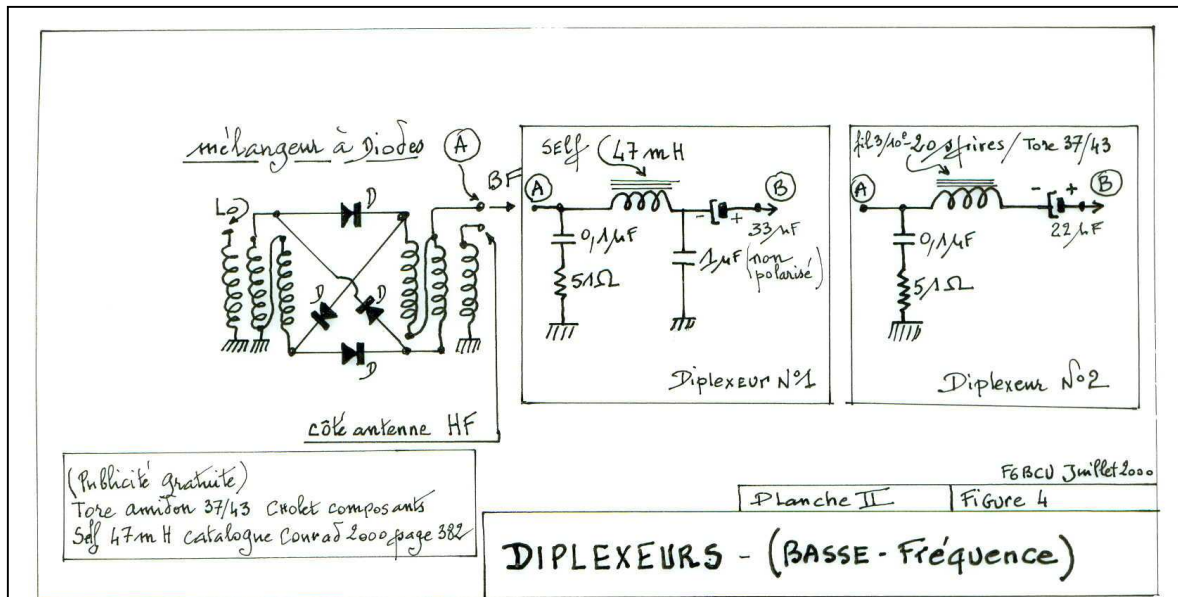 mélangeur à Diodes
A
BF
LO
D
D
D
D
côté antenne HF
SELF 47mH
A
B
- +
33µF
0,1µF
51Ω
1µF (non polarisé)
Diplexeur N°1
fil 3/10e - 20 spires / Tore 37/43
A
- +
B
22µF
0,1µF
51Ω
Diplexeur N°2
(Publicité gratuite)
Tore amidon 37/43 Cholet composants
Self 47mH catalogue Conrad 2000 page 382
F6BCU Juillet 2000
Planche II
Figure 4
DIPLEXEURS - (BASSE - Fréquence)